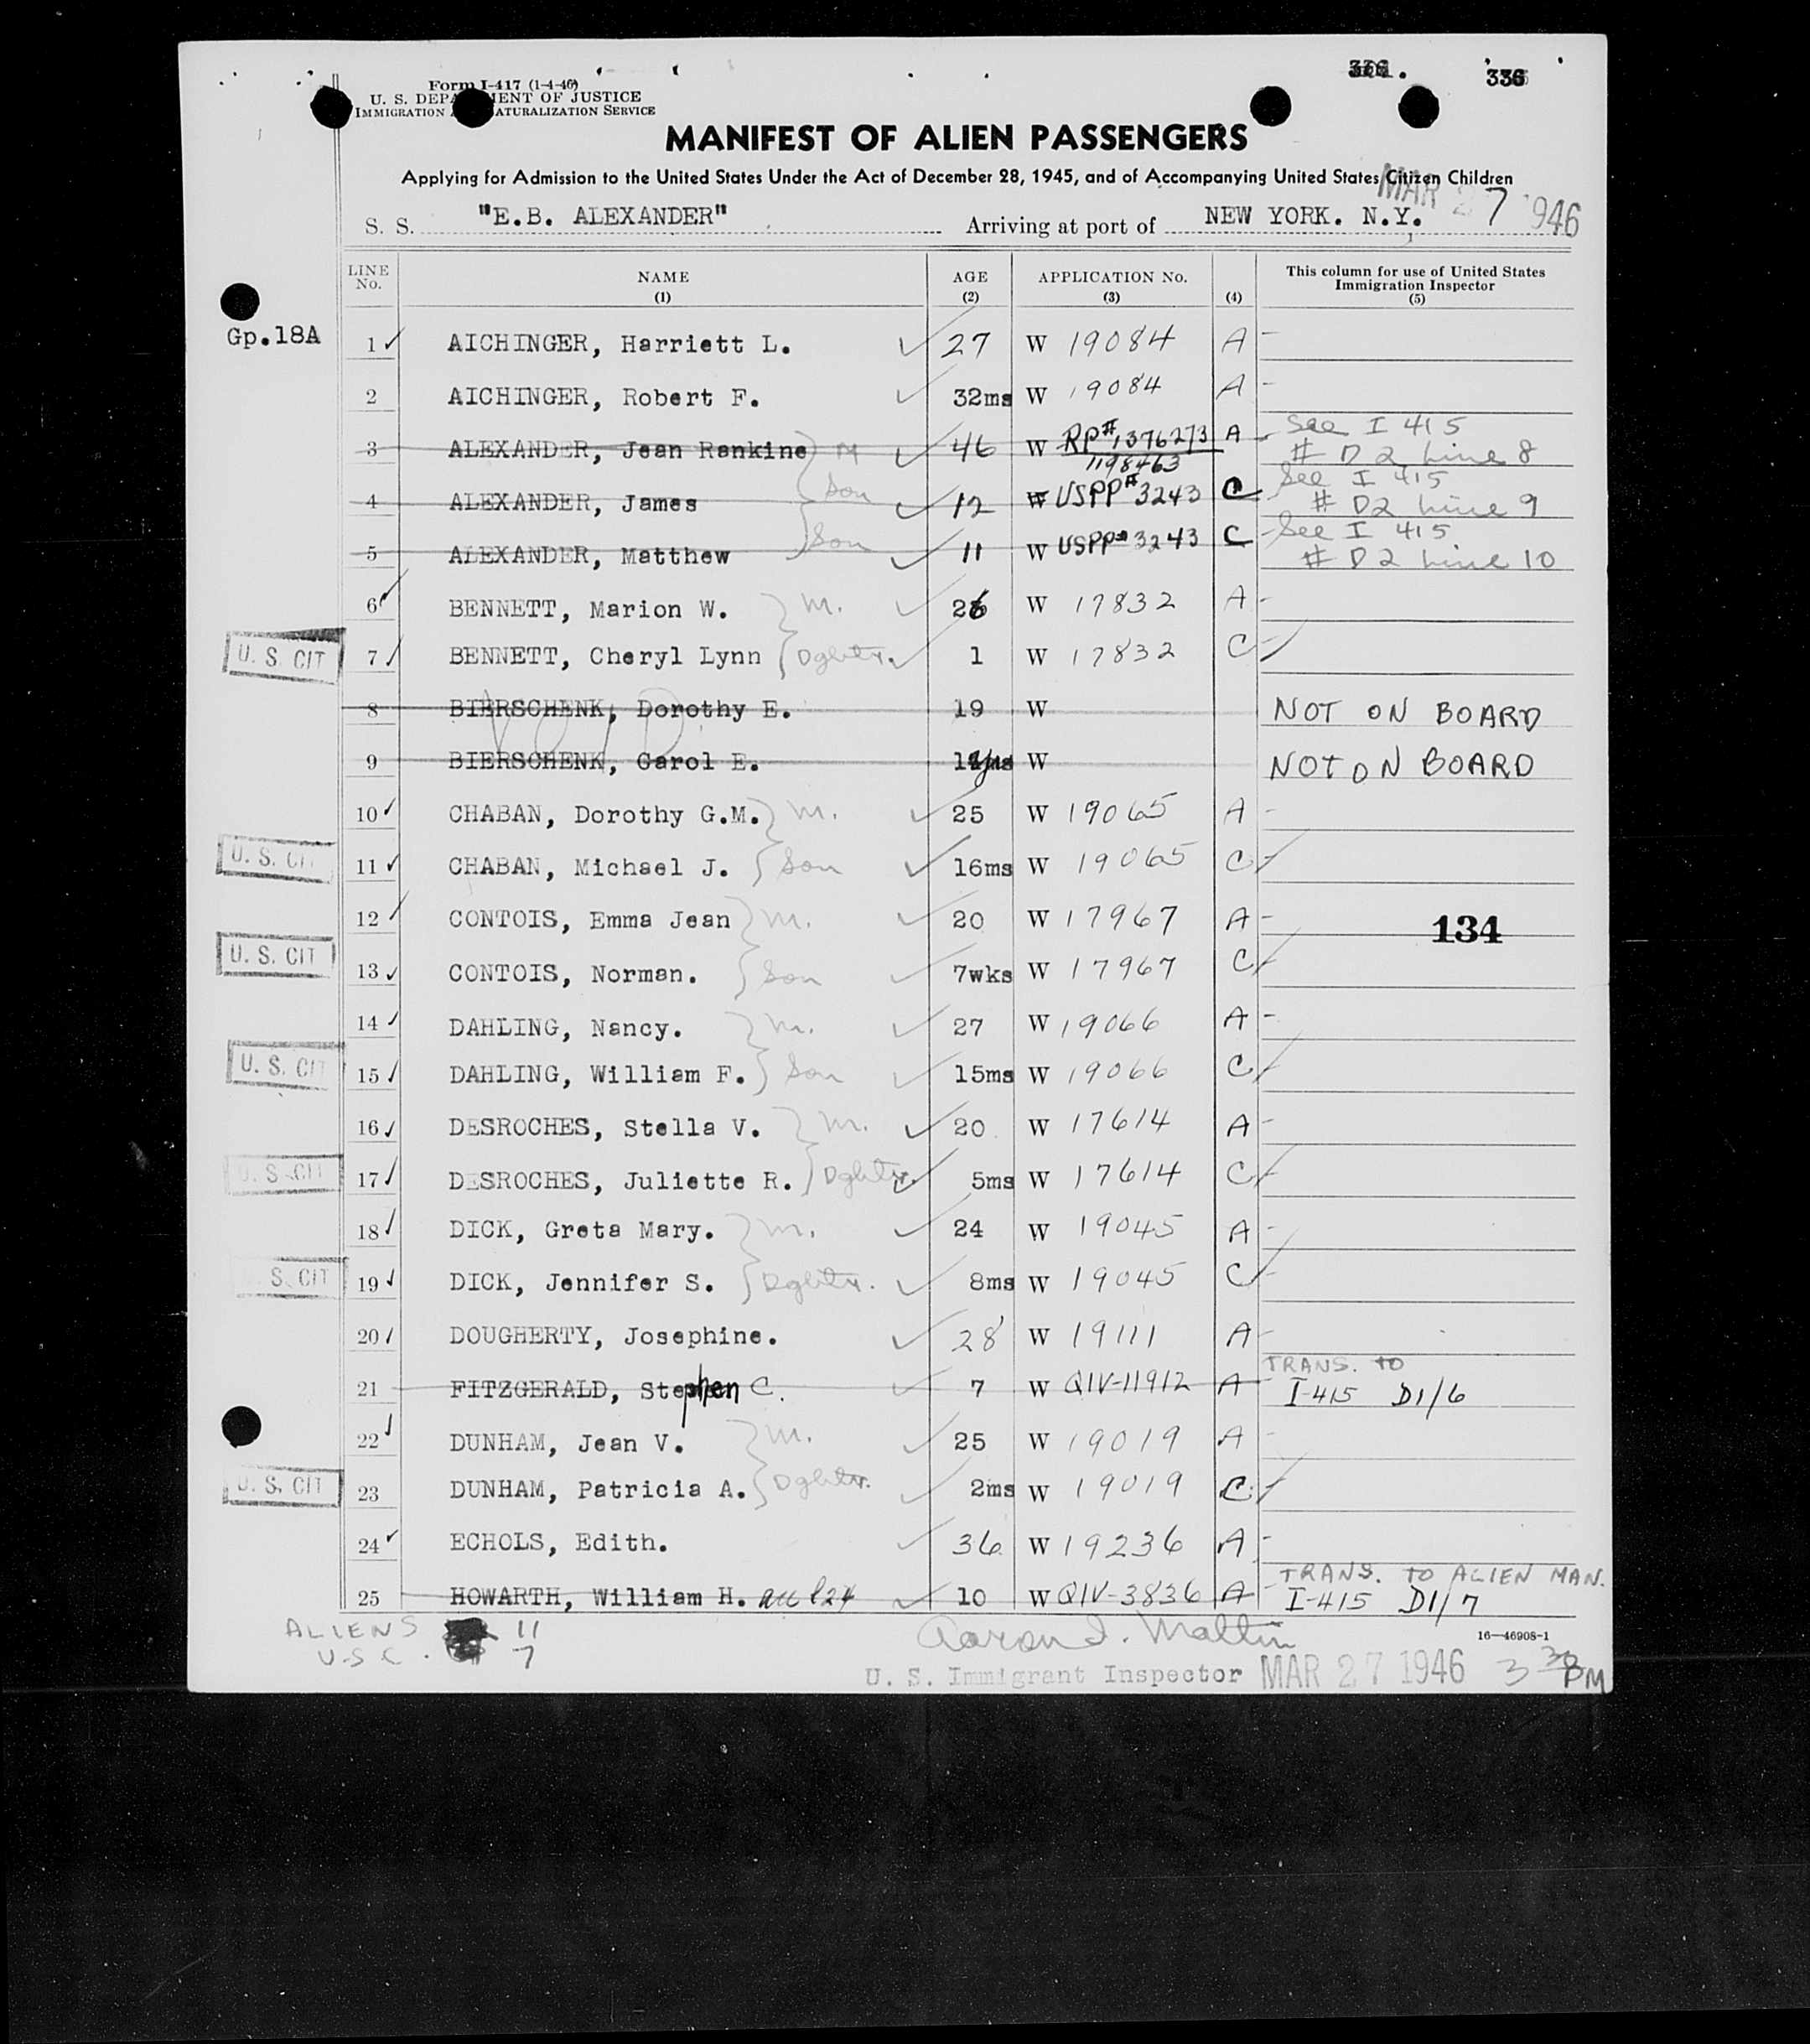 336. 336
Form I-417 (1-4-46)
U. S. DEPARTMENT OF JUSTICE
IMMIGRATION NATURALIZATION SERVICE
MANIFEST OF ALIEN PASSENGERS
Applying for Admission to the United States Under the Act of December 28, 1945, and of Accompanying United States Citizen Children
MAR 27 1946
S. S. "E.B. ALEXANDER" Arriving at port of NEW YORK. N.Y.
LINE No. NAME (1) AGE (2) APPLICATION No. (3) (4) This column for use of United States Immigration Inspector (5)
Gp.18A 1 AICHINGER, Harriett L. 27 W 19084 A -
2 AICHINGER, Robert F. 32ms W 19084 A -
3 ALEXANDER, Jean Rankine M 46 W RP# 1376273 1198463 A - See I 415 # D2 Line 8
4 ALEXANDER, James Son 12 W USPP# 3243 C See I 415 # D2 Line 9
5 ALEXANDER, Matthew Son 11 W USPP# 3243 C - See I 415 # D2 Line 10
6 BENNETT, Marion W. M. 26 W 17832 A -
U. S. CIT 7 BENNETT, Cheryl Lynn Dghtr. 1 W 17832 C
8 BIERSCHENK, Dorothy E. 19 W NOT ON BOARD
9 BIERSCHENK, Carol E. W NOT ON BOARD
VOID
10 CHABAN, Dorothy G.M. M. 25 W 19065 A -
U. S. CIT 11 CHABAN, Michael J. Son 16ms W 19065 C
12 CONTOIS, Emma Jean M. 20 W 17967 A - 134
U. S. CIT 13 CONTOIS, Norman. Son 7wks W 17967 C
14 DAHLING, Nancy. M. 27 W 19066 A -
U. S. CIT 15 DAHLING, William F. Son 15ms W 19066 C
16 DESROCHES, Stella V. M. 20 W 17614 A -
U. S. CIT 17 DESROCHES, Juliette R. Dghtr. 5ms W 17614 C
18 DICK, Greta Mary. M. 24 W 19045 A -
S. CIT 19 DICK, Jennifer S. Dghtr. 8ms W 19045 C
20 DOUGHERTY, Josephine. 28 W 19111 A -
21 FITZGERALD, Stephen C. 7 W QIV-11912 A TRANS. TO I-415 D1/6
22 DUNHAM, Jean V. M. 25 W 19019 A -
U. S. CIT 23 DUNHAM, Patricia A. Dghtr. 2ms W 19019 C
24 ECHOLS, Edith. 36 W 19236 A -
25 HOWARTH, William H. acc l24 10 W QIV-3836 A TRANS. TO ALIEN MAN. I-415 D1/7
ALIENS 11
U.S.C. 7
16—46908-1
U. S. Immigrant Inspector MAR 27 1946 3 30 PM